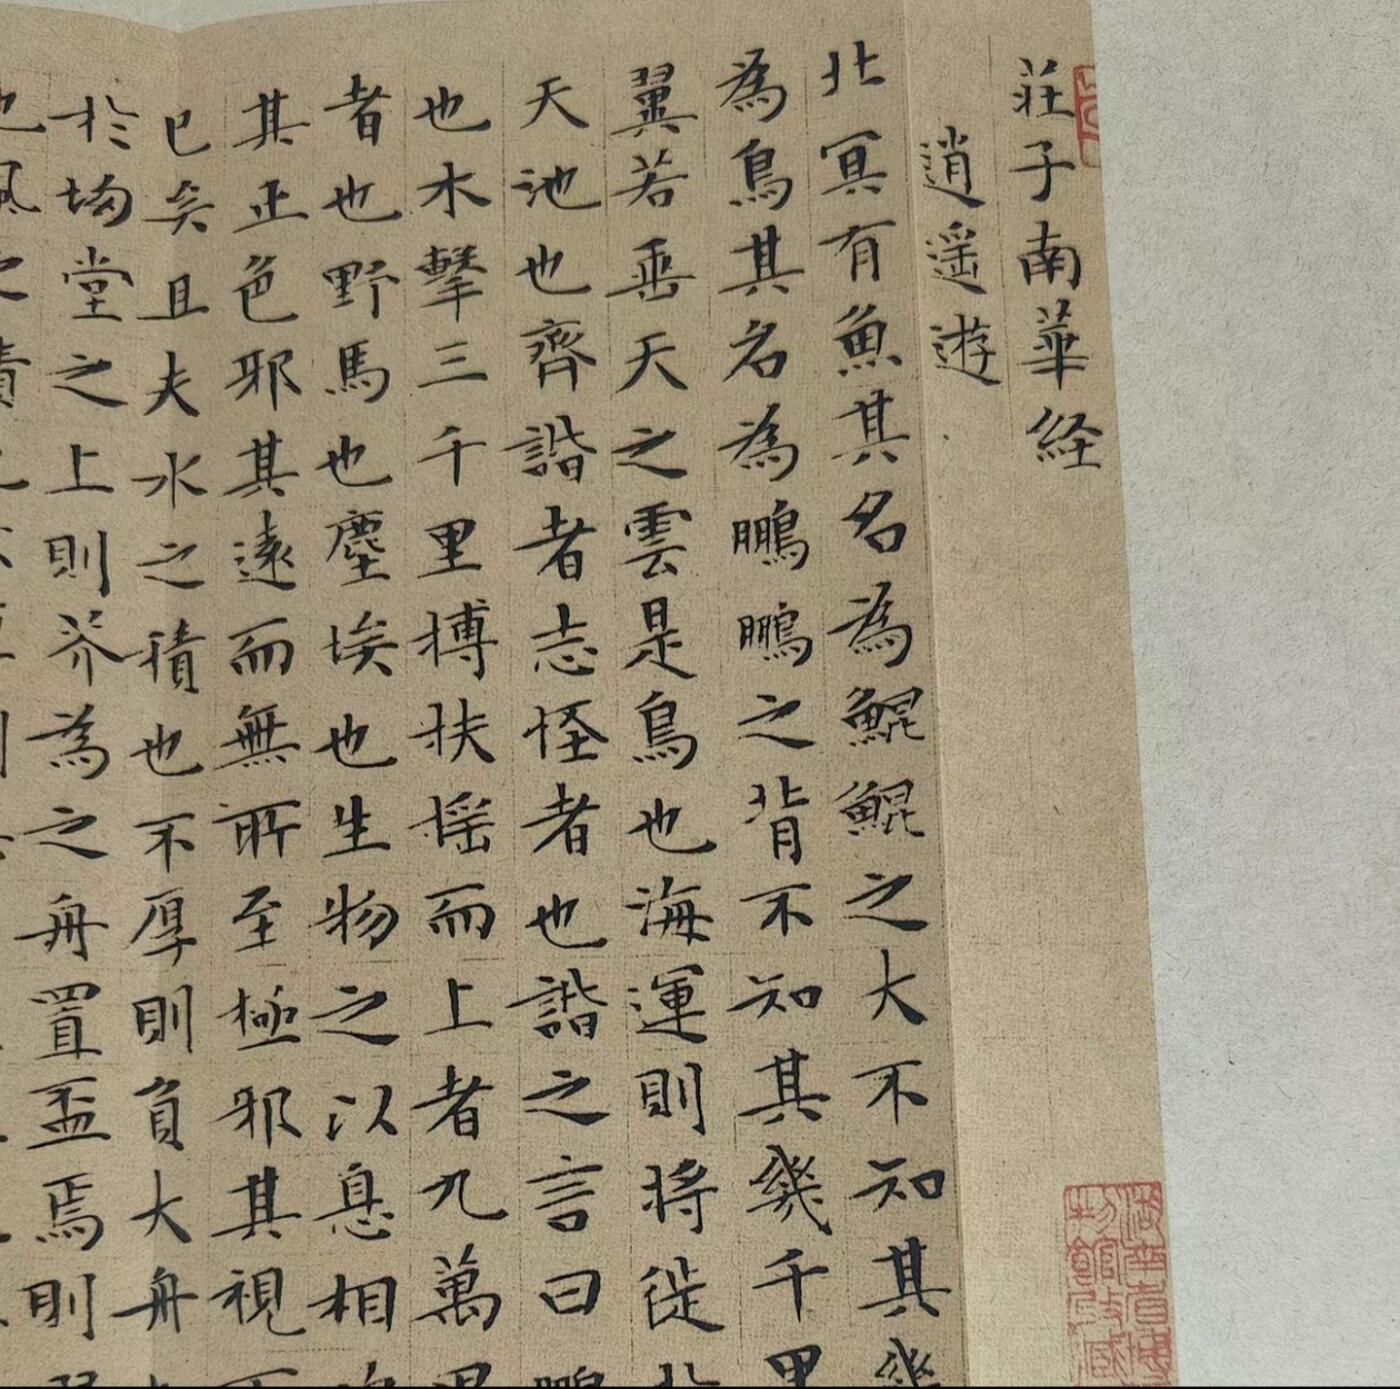 莊子南華経
逍遥遊
北冥有魚其名為鯤鯤之大不知其幾
為鳥其名為鵬鵬之背不知其幾千里
翼若垂天之雲是鳥也海運則將徙
天池也齊諧者志怪者也諧之言曰鵬
也水擊三千里搏扶摇而上者九萬里
者也野馬也塵埃也生物之以息相
其正色邪其遠而無所至極邪其視下
已矣且夫水之積也不厚則負大舟
於坳堂之上則芥為之舟置盃焉則
也風之積
湖南省博
物館收藏